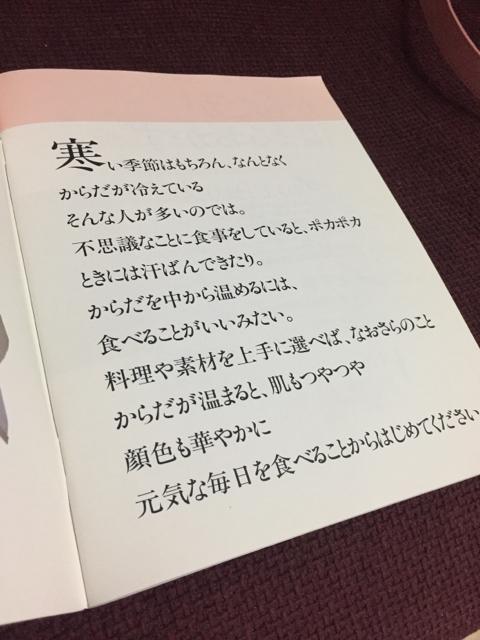 寒い季節はもちろん、なんとなく
からだが冷えている
そんな人が多いのでは。
不思議なことに食事をしていると、ポカポカ
ときには汗ばんできたり。
からだを中から温めるには、
食べることがいいみたい。
料理や素材を上手に選べば、なおさらのこと
からだが温まると、肌もつやつや
顔色も華やかに
元気な毎日を食べることからはじめてください